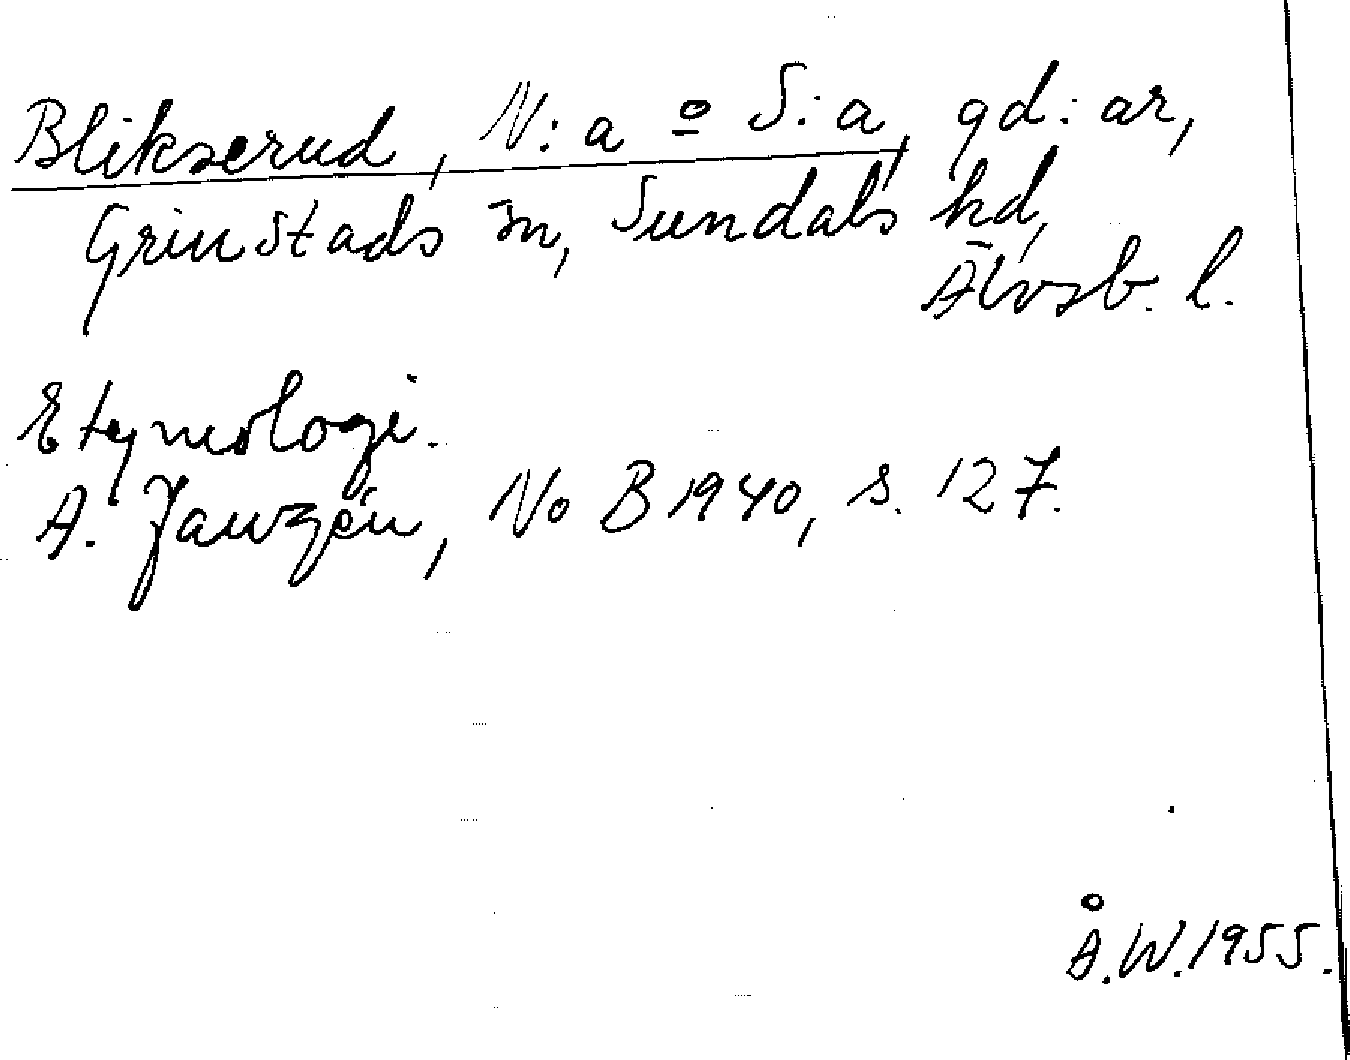 Blikserud, N:a o S:a, gd:ar,
Grinstads sn, Sundals hd,
Älvsb. l.
Etymologi.
A. Janzén, NoB 1940, s. 127.
Å.W. 1955.